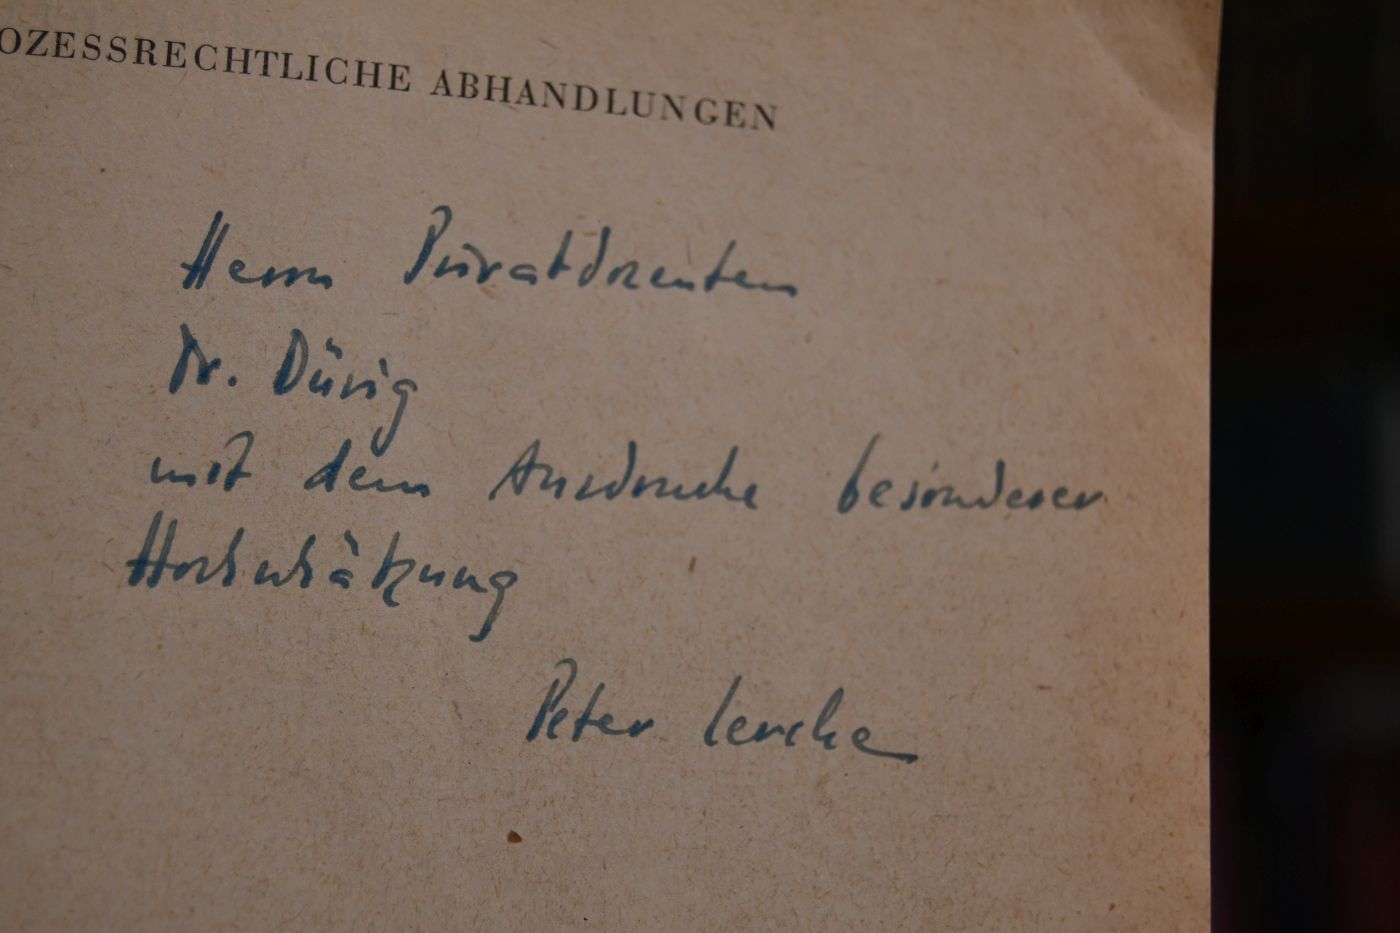 OZESSRECHTLICHE ABHANDLUNGEN
Herrn Privatdozenten
Dr. Dürig
mit dem Ausdrucke besonderer
Hochschätzung
Peter Lerche